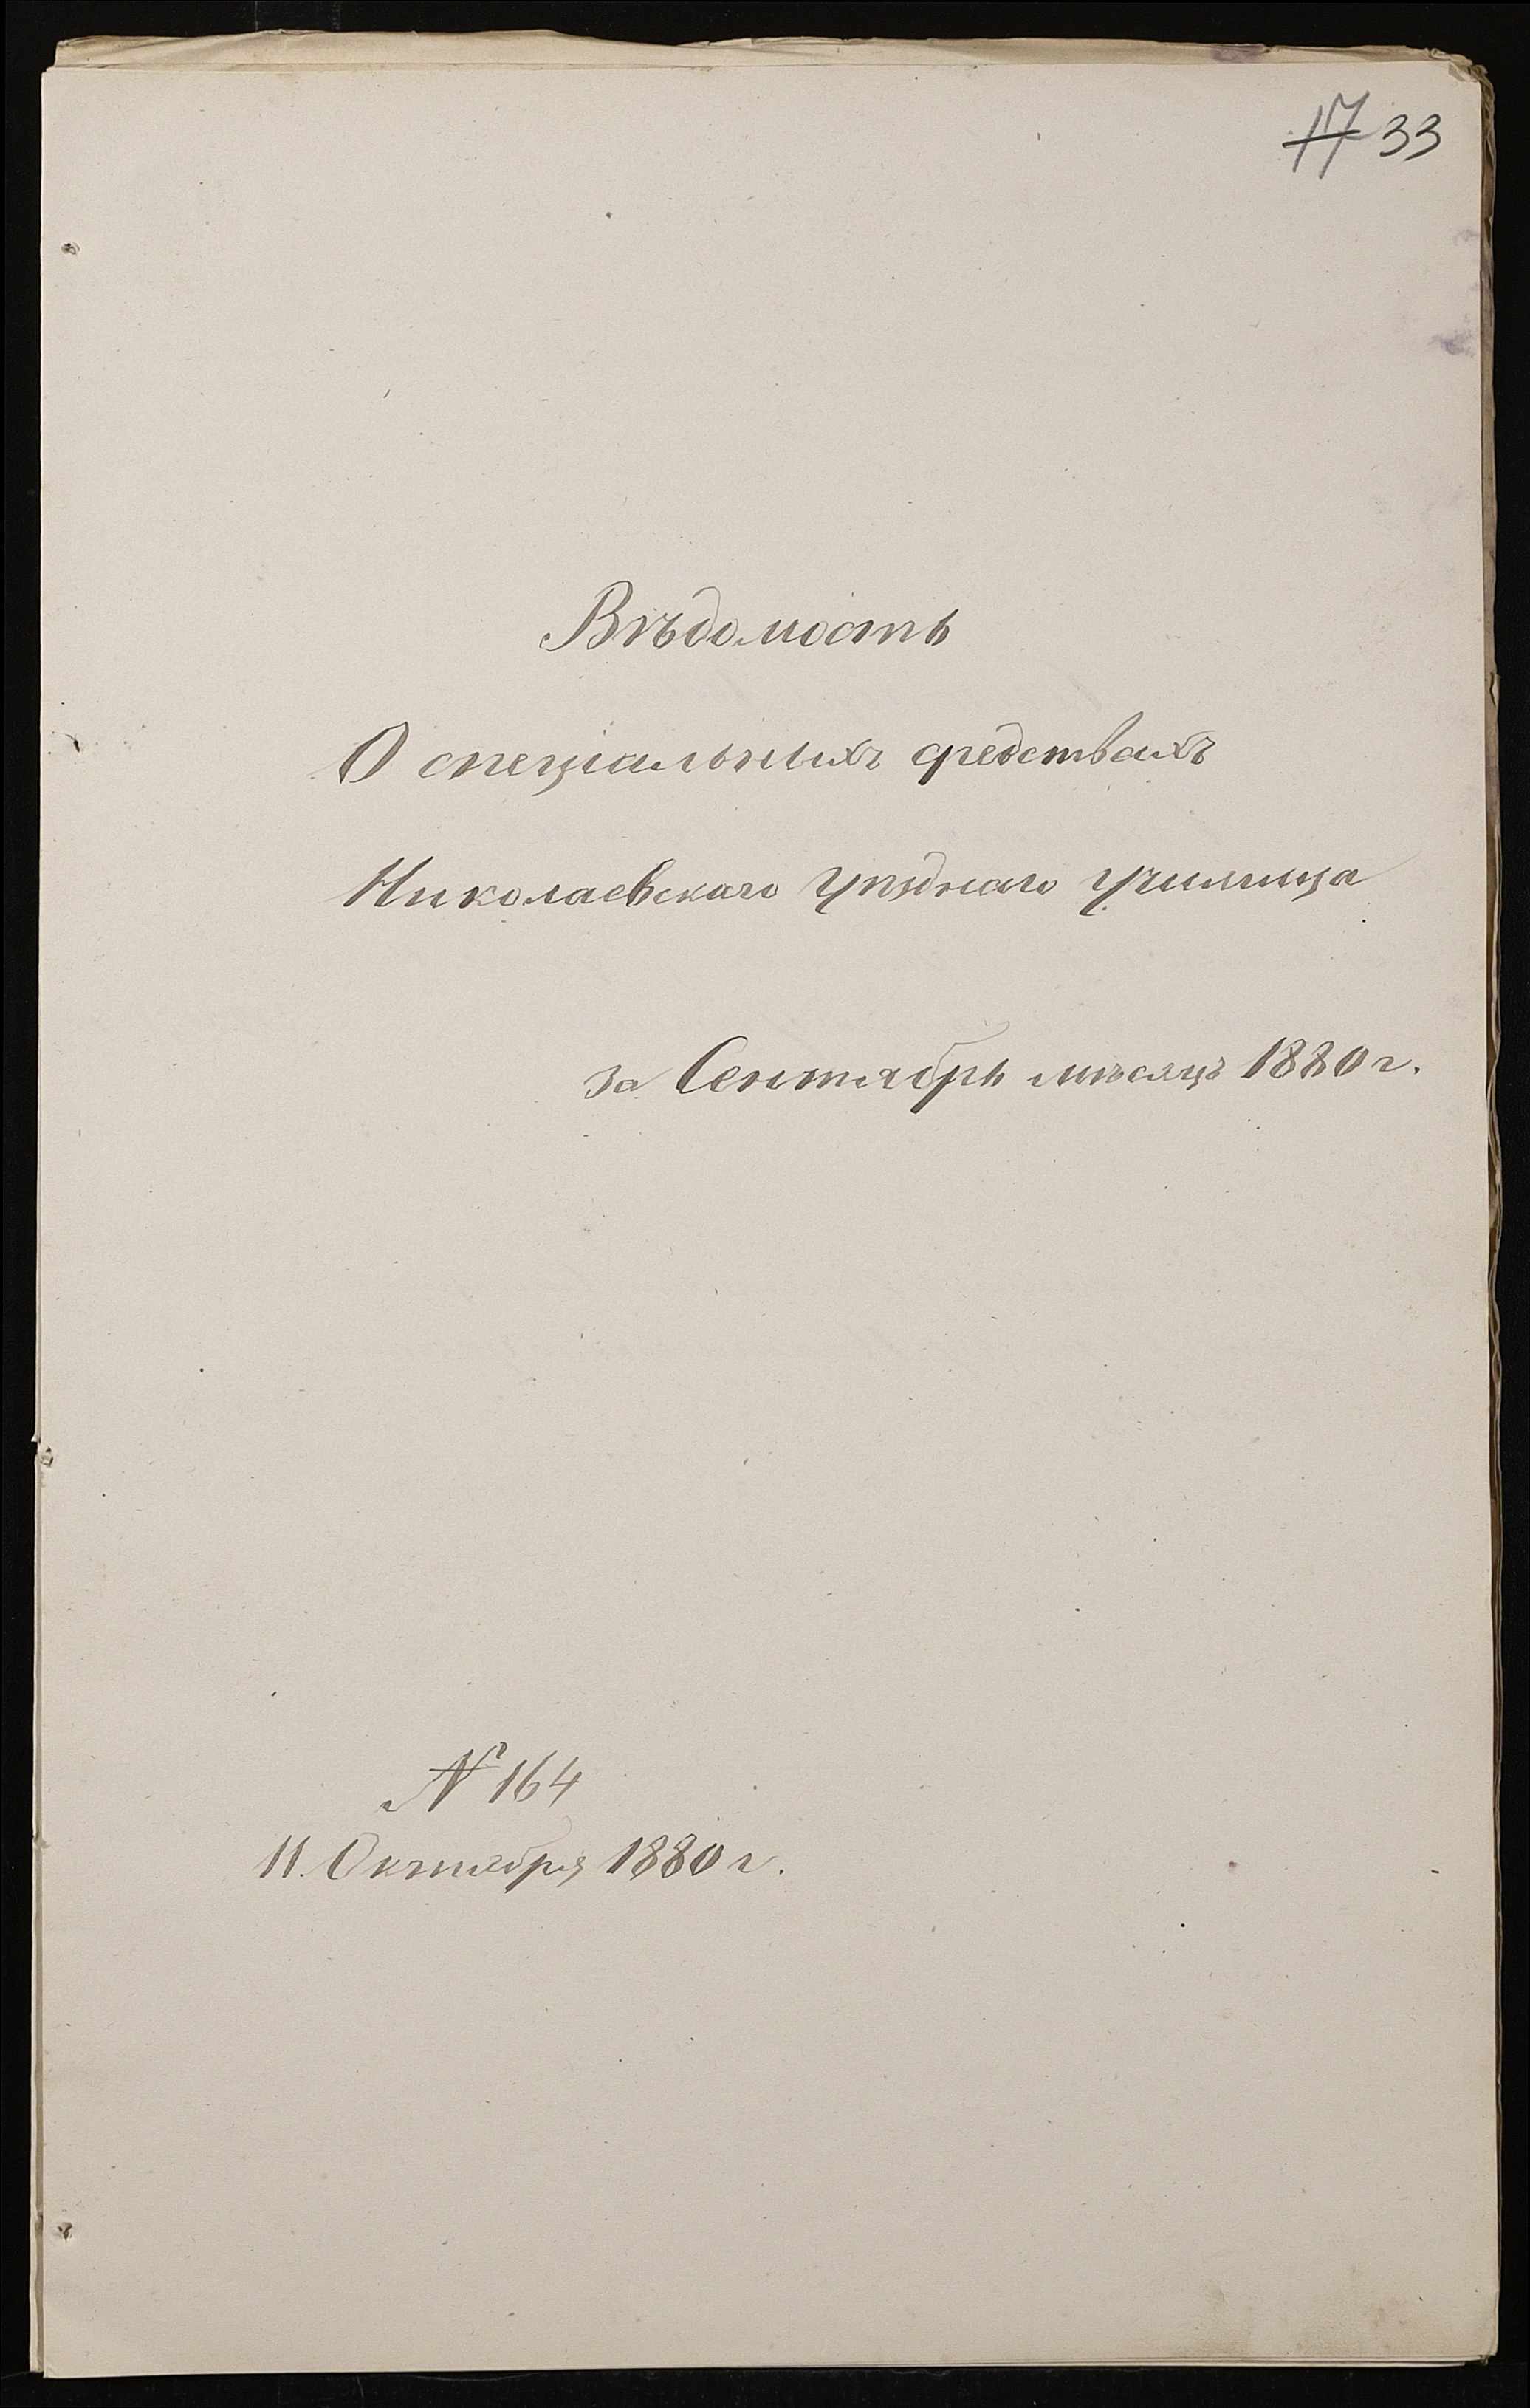 17 33
Вѣдомость
О спеціальныхъ средствахъ
Николаевскаго Уѣзднаго училища
за Сентябрь мѣсяцъ 1880 г.
№ 164
11. Октября 1880 г.